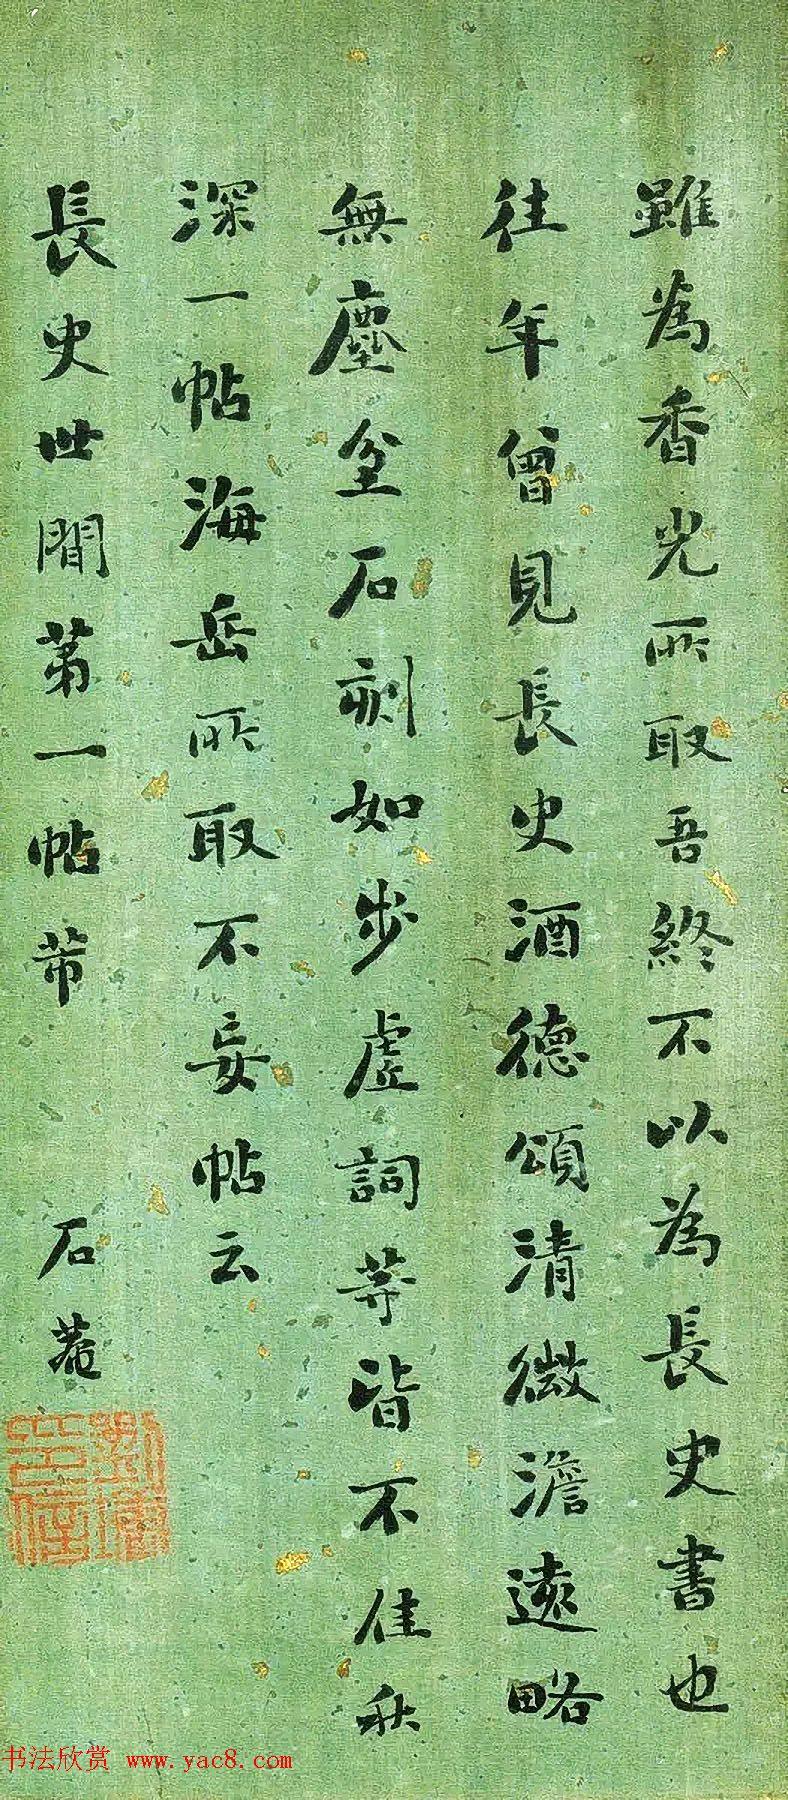 雖為香光所取吾終不以為長史書也
往年曾見長史酒德頌清微澹遠略
無塵坌石刻如步虛詞等皆不佳秋
深一帖海岳所取不妄帖云
長史世間第一帖芾
石菴
劉墉
印信
书法欣赏 www.yac8.com